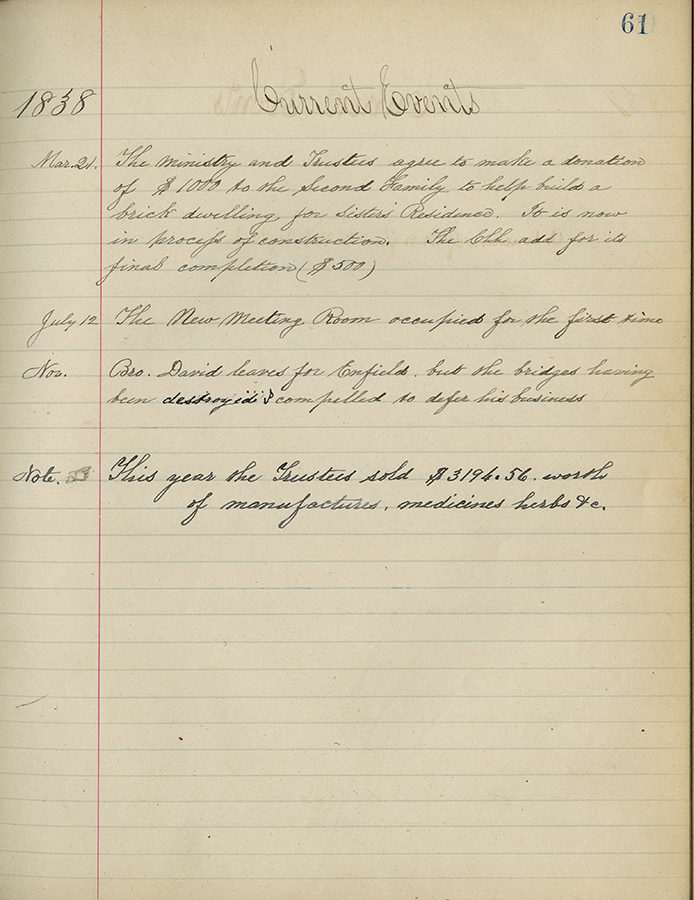 61
Current Events
1838
Mar. 21. The Ministry and Trustees agree to make a donation
of $1000 to the Second Family to help build a
brick dwelling for Sisters Residence. It is now
in process of construction. The Chh add for its
final completion ($500)
July 12 The New Meeting Room occupied for the first time
Nov. Bro. David leaves for Enfield, but the bridges having
been destroyed is compelled to defer his business
Note. This year the Trustees sold $3194.56. worth
of manufactures, medicines herbs &c.